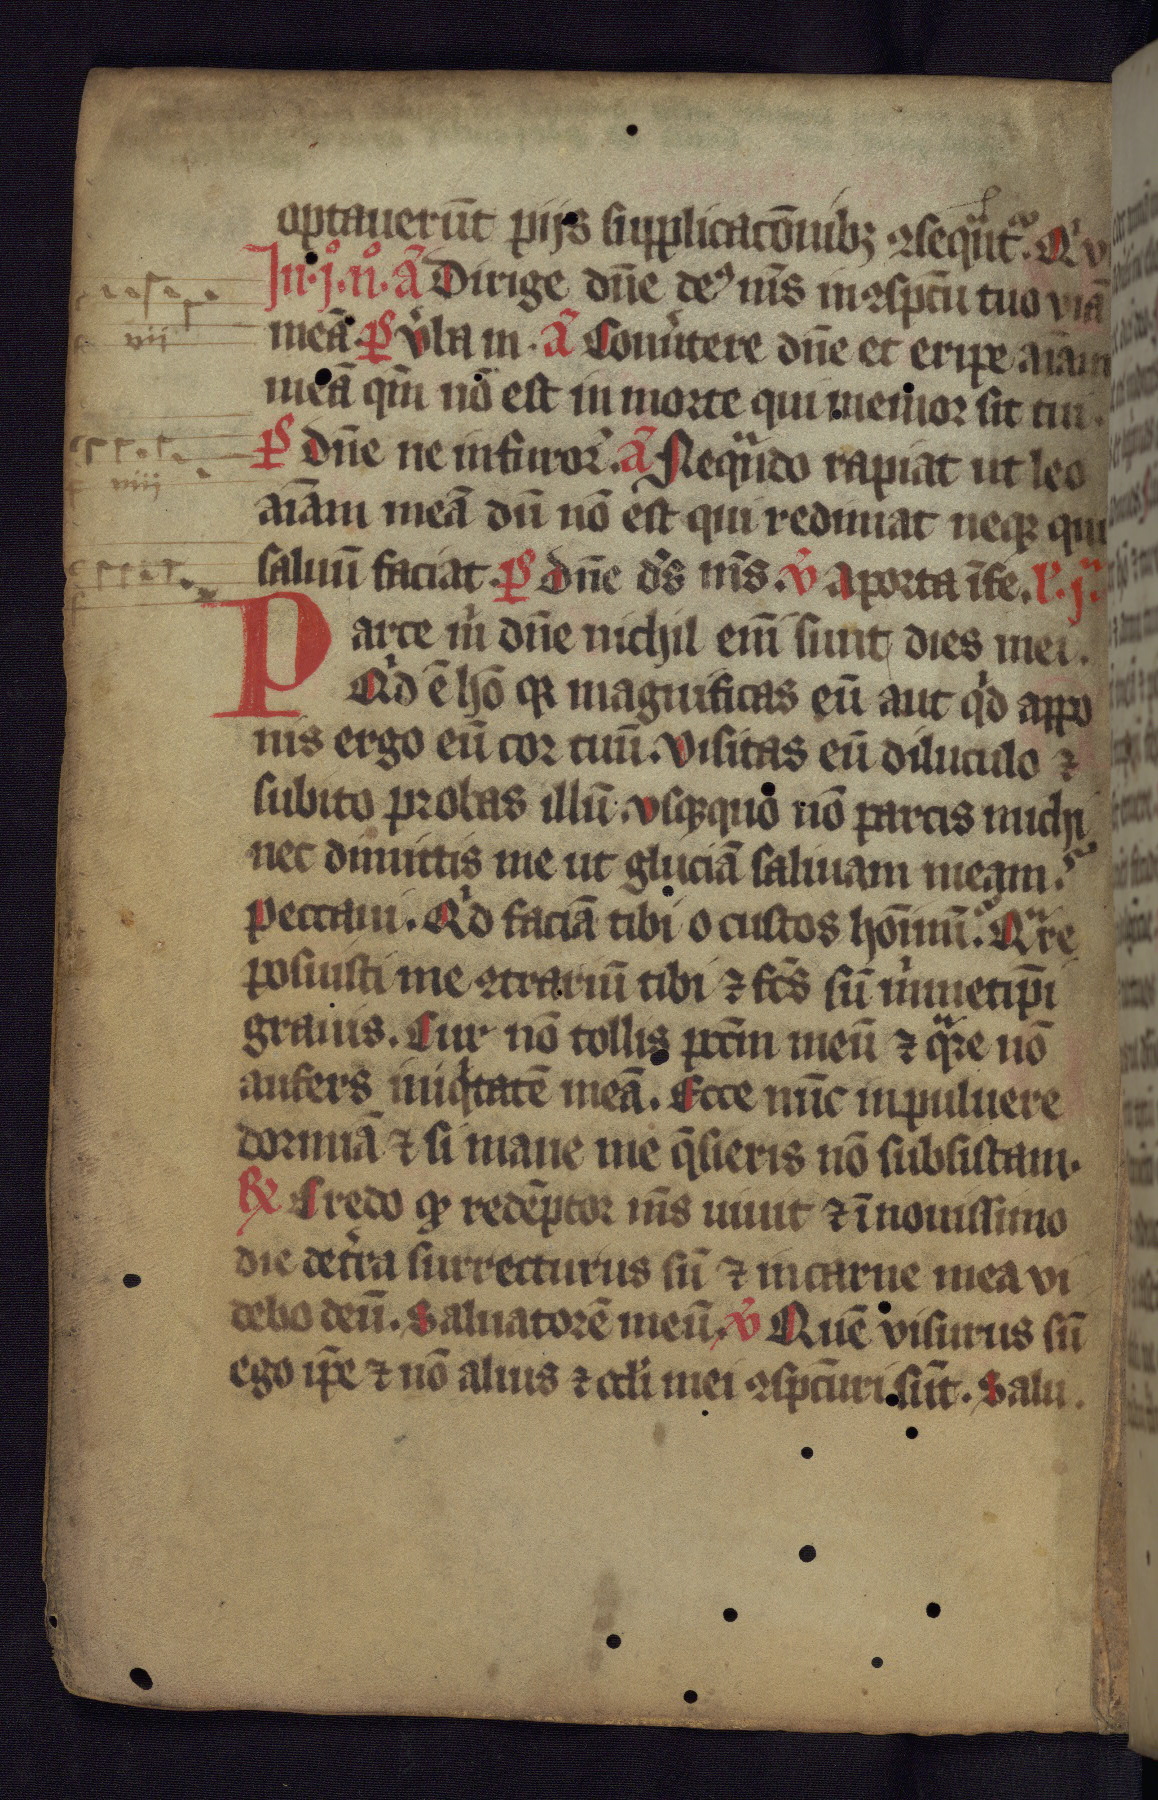 optauerūt pijs supplicacōnibꝫ ꝯsequātᷣ. Qͥ v
In · j̊ · n̊ · ā Dirige dn̄e deꝰ m̄s in ꝯspc̄tu tuo viā
meā. p̄s v̓ba m · ā Conu̓tere dn̄e et eripe aīam
meā qm̄ nō est in morte qui memor sit tui.
p̄s Dn̄e ne in furorͤ. ā Neqᷓndo rapiat ut leo
aīam meā dū nō est qui redimat neqꝫ qui
saluū faciat. p̄s Dn̄e ds̄ ms̄. v̓ A porta īfe. l̓. jᵃ.
Parce m̓ dn̄e nichil em̄ sunt dies mei.
Qͥd ē hō qꝫ magnificas eū aut qͥd appo
nis ergo eū cor tuū. Visitas eū diluculo ⁊
subito probas illū. Vsqꝫquo nō parcis michi
nec dimittis me ut gluciā saliuam meam.
Peccaui. Qͥd faciā tibi o custos hōīnū. Qᷓre
posuisti me ꝯtrariū tibi ⁊ fc̄s sū m̓metip̄i
grauis. Cur nō tollis pctm̄ meū ⁊ qᷓre nō
aufers iniqͥtatē meā. Ecce nūc in puluere
dormiā ⁊ si mane me q̄sieris nō subsistam.
℞ Credo ꝙ redēptor ms̄ uiuit ⁊ ī nouissimo
die de tr̓ra surrecturus sū ⁊ in carne mea vi
debo deū. Saluatorē meū. v̓ Quē visurus sū
ego ip̄e ⁊ nō alius ⁊ ocli̓ mei ꝯspc̄turi sūt. Salu.
vii
viii